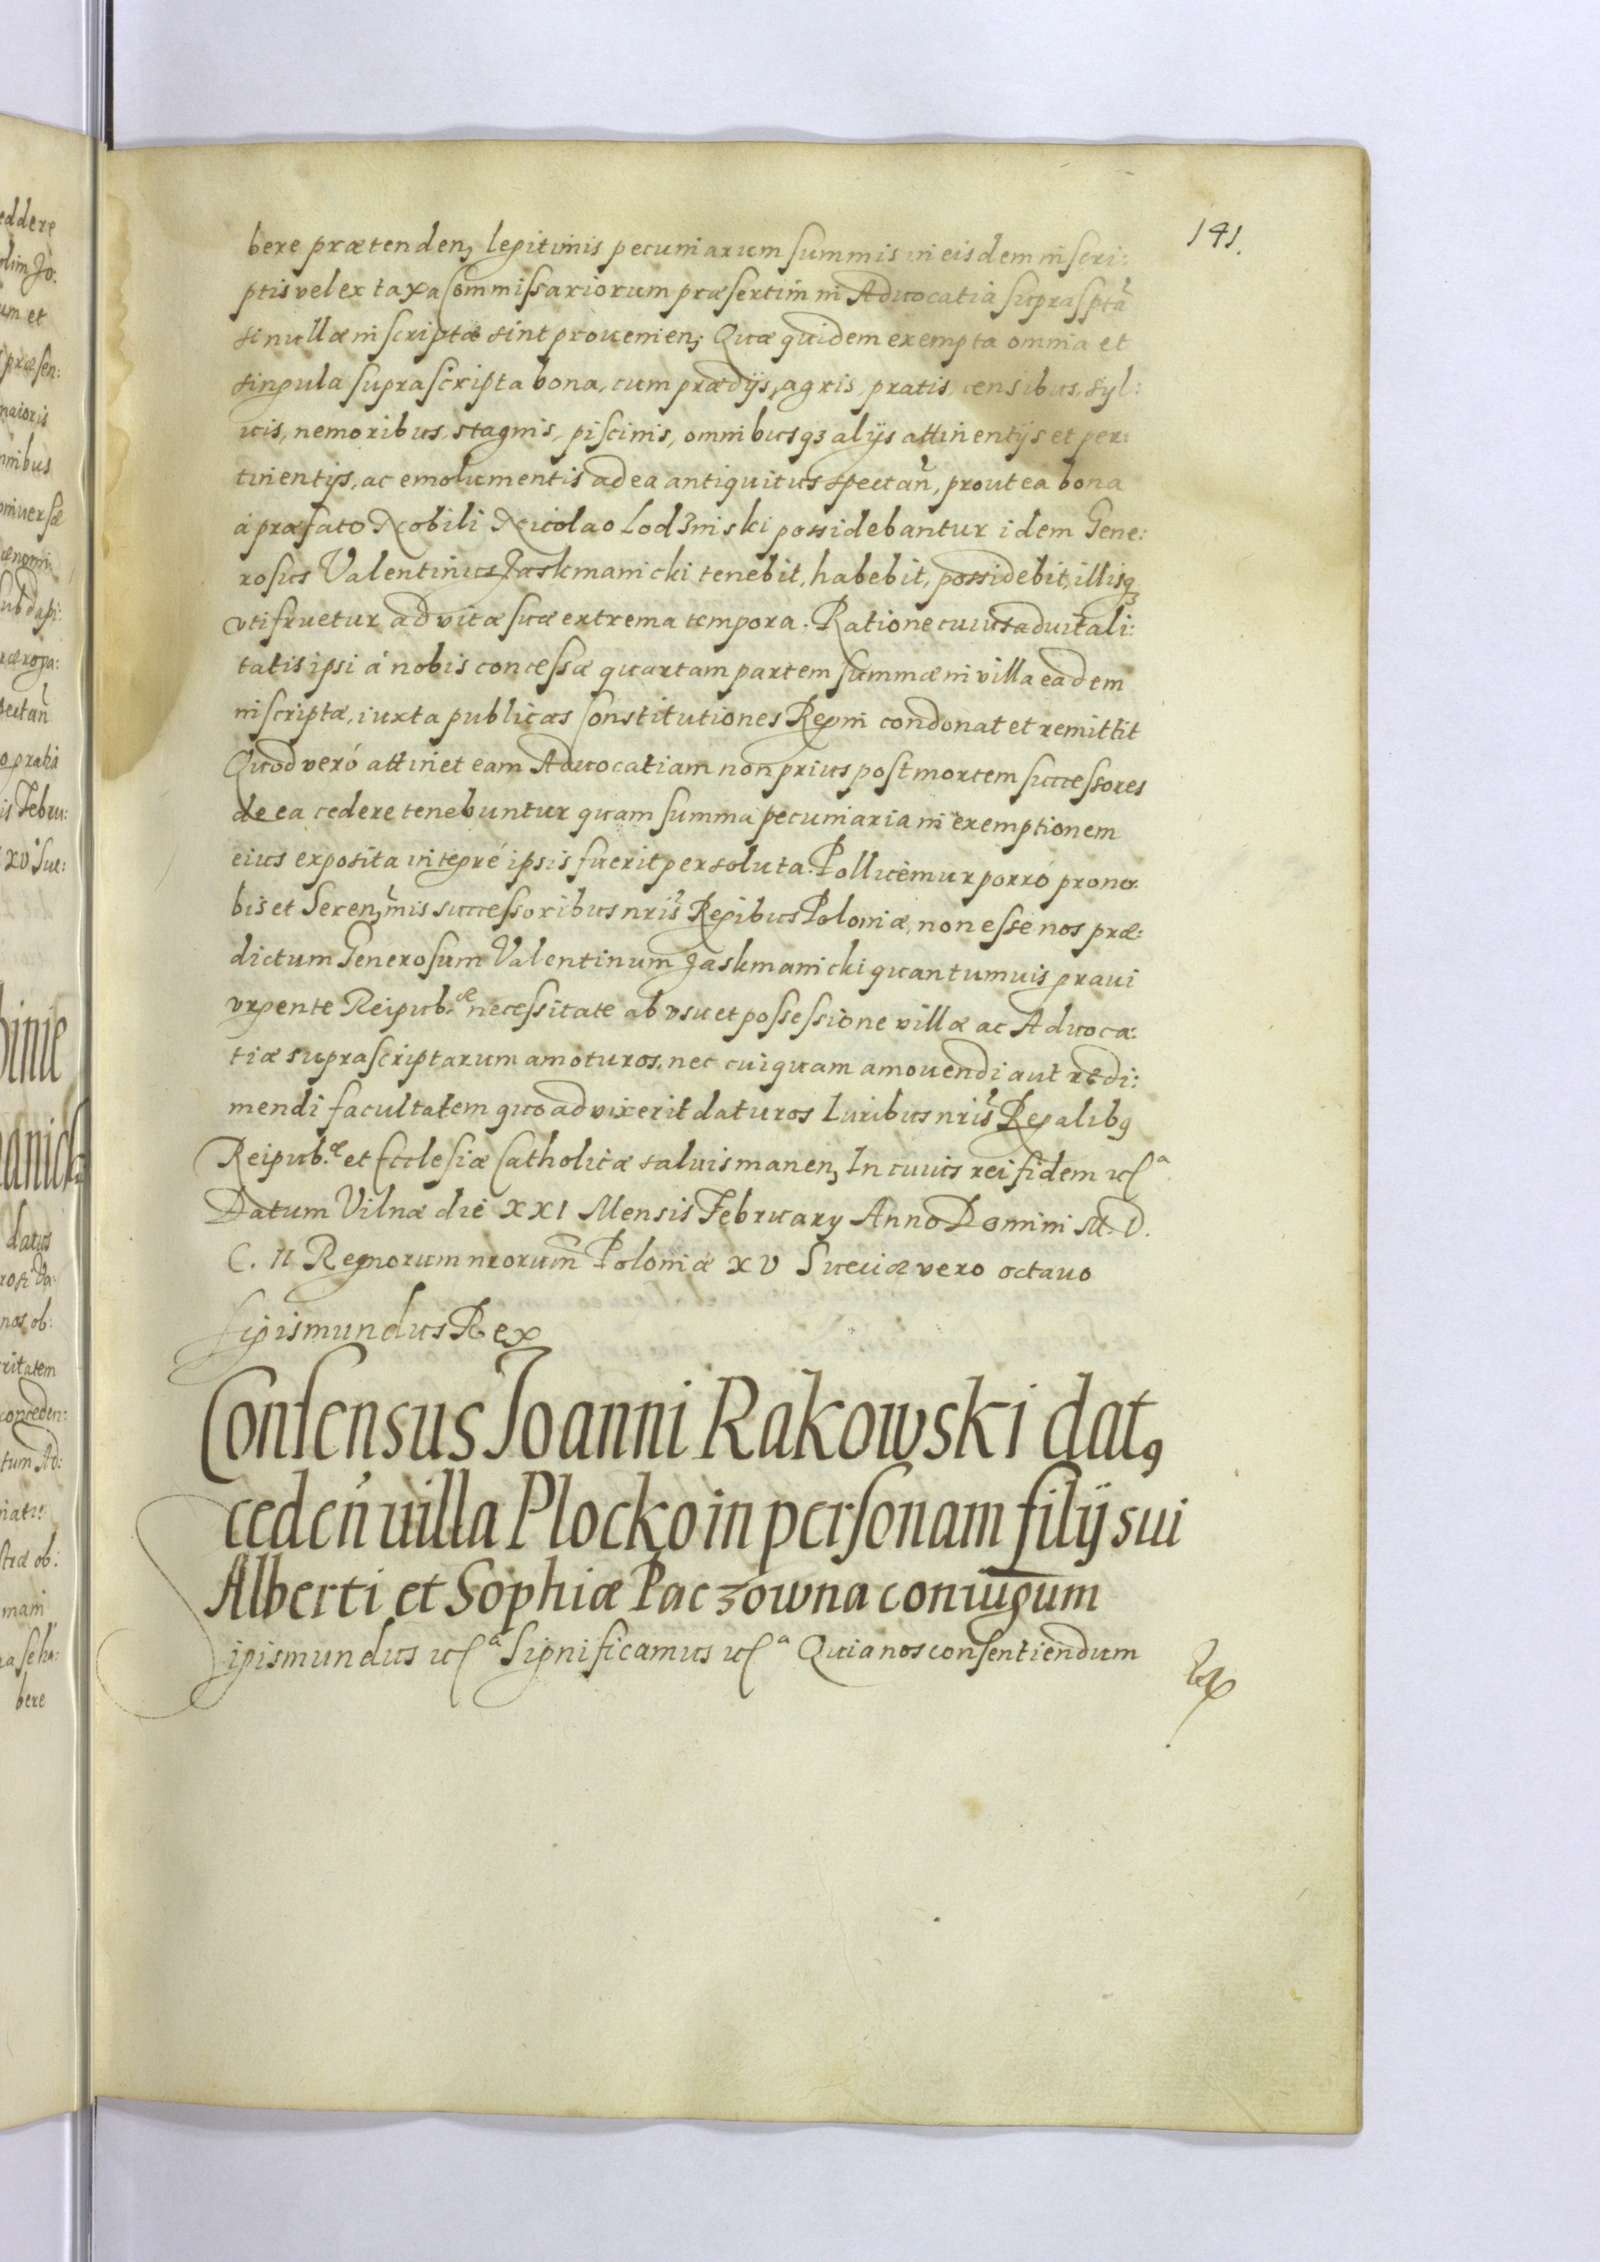 141.
bere prætenden, legitimis pecuniarum summis in eisdem inscri:
ptis vel ex taxa Commissariorum præsertim in Aduocatia suprasptã
si nullæ inscriptæ sint prouenien, Quæ quidem exempta omnia et
singula suprascripta bona, cum prædijs, agris, pratis, censibus, syl:
uis, nemoribus, stagnis, piscinis, omnibusqz alijs attinentijs et per:
tinentijs, ac emolumentis ad ea antiquitus spectañ, prout ea bona
à præfato Nobili Nicolao Lodzinski possidebantur idem Gene:
rosus Valentinus Jaskmanicki tenebit, habebit, possidebit, illisqz
vtifruetur ad vitæ suæ extrema tempora. Ratione cuius aduitali:
tatis ipsi à nobis concessæ quartam partem summæ in villa eadem
inscriptæ, iuxta publicas Constitutiones Regni condonat et remittit
Quod verò attinet eam Aduocatiam non prius post mortem successores
de ea cedere tenebuntur quam summa pecuniaria in exemptionem
eius exposita integrè ipsis fuerit persoluta. Pollicemur porrò pro no:
bis et Seren,mis successoribus nris Regibus Poloniæ, non esse nos præ:
dictum Generosum Valentinum Jaskmanicki quantumuis graui
vrgente Reipub.æ necessitate ab vsu et possessione villæ ac Aduoca:
tiæ suprascriptarum amoturos, nec cuiquam amouendi aut redi:
mendi facultatem quoad vixerit daturos Iuribus nris Regalibꝯ
Reipub.æ et Ecclesiæ Catholicæ saluis manen, In cuius rei fidem ecꝭa
Datum Vilnæ die XXI Mensis February Anno Domini M. D.
C. II Regnorum nrorum Poloniæ XV Sueciæ vero octauo
Sigismundus Rex
Consensus Joanni Rakowski datꝯ
cedeñ uilla Plocko in personam filij sui
Alberti et Sophiæ Paczowna coniugum
Sigismundus ecꝭa Significamus ecꝭa Quia nos consentiendum
eddere
olim Jo:
um et
præsen:
maioris
mnibus
omiuersæ
sub dapi:
pectañ
is Febru:
XV Sue:
binie
manick
datus
nos ob:
ritatem
conceden:
tum Ad:
mam
bere